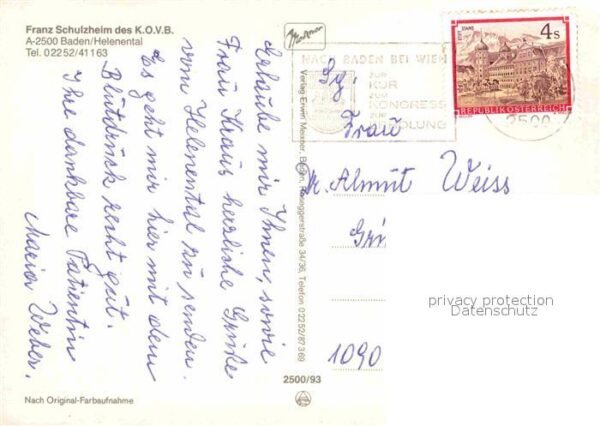 Franz Schulzheim des K.O.V.B.
A-2500 Baden/Helenental
Tel. 02252/41163
Erlaube mir Ihnen, sowie
Frau Kraus herzliche Grüße
vom Helenental zu senden.
Es geht mir hier mit dem
Blutdruck recht gut.
Ihre dankbare Patientin
Maria Weber.
Nach Original-Farbaufnahme
2500/93
Verlag Erwin Meixner, Baden, Roseggerstraße 34/36, Telefon 02252/87369
Meixner
NACH BADEN BEI WIEN
ZUR
KUR
ZUM
KONGRESS
ZUR
2500
STIFT STAMS
4 S
REPUBLIK ÖSTERREICH
Frau
Almut Weiss
1090
privacy protection
Datenschutz